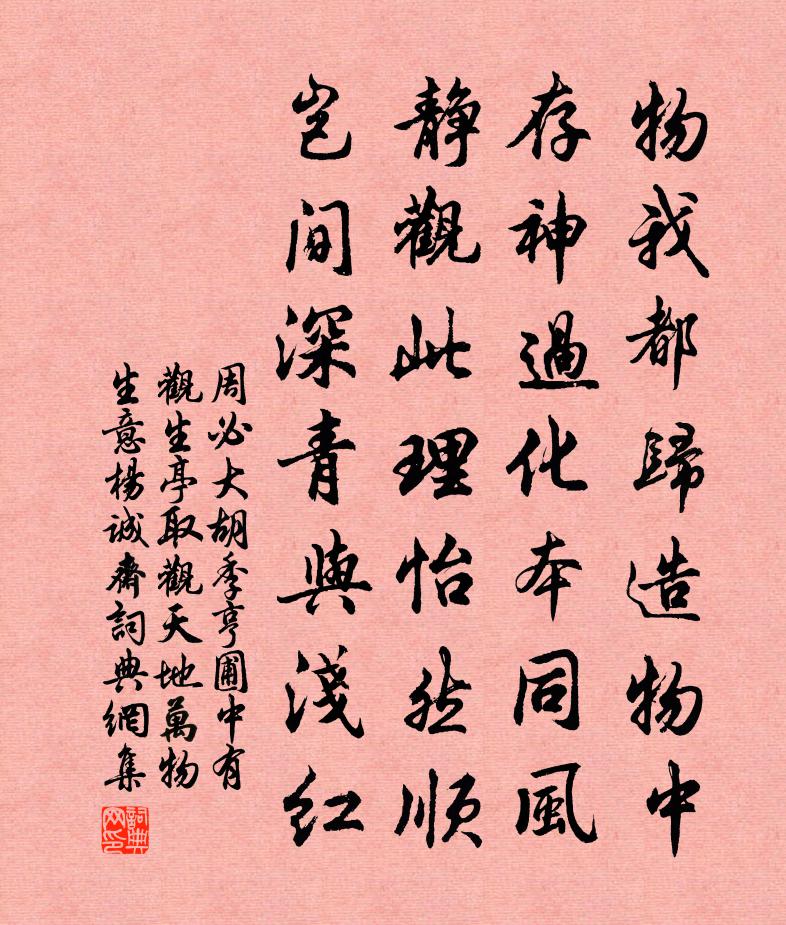 物我都歸造物中
存神過化本同風
靜觀此理怡然順
豈間深青與淺紅
周必大胡季亨圃中有
觀生亭取觀天地萬物
生意楊誠齋詞典網集
詞典
网印